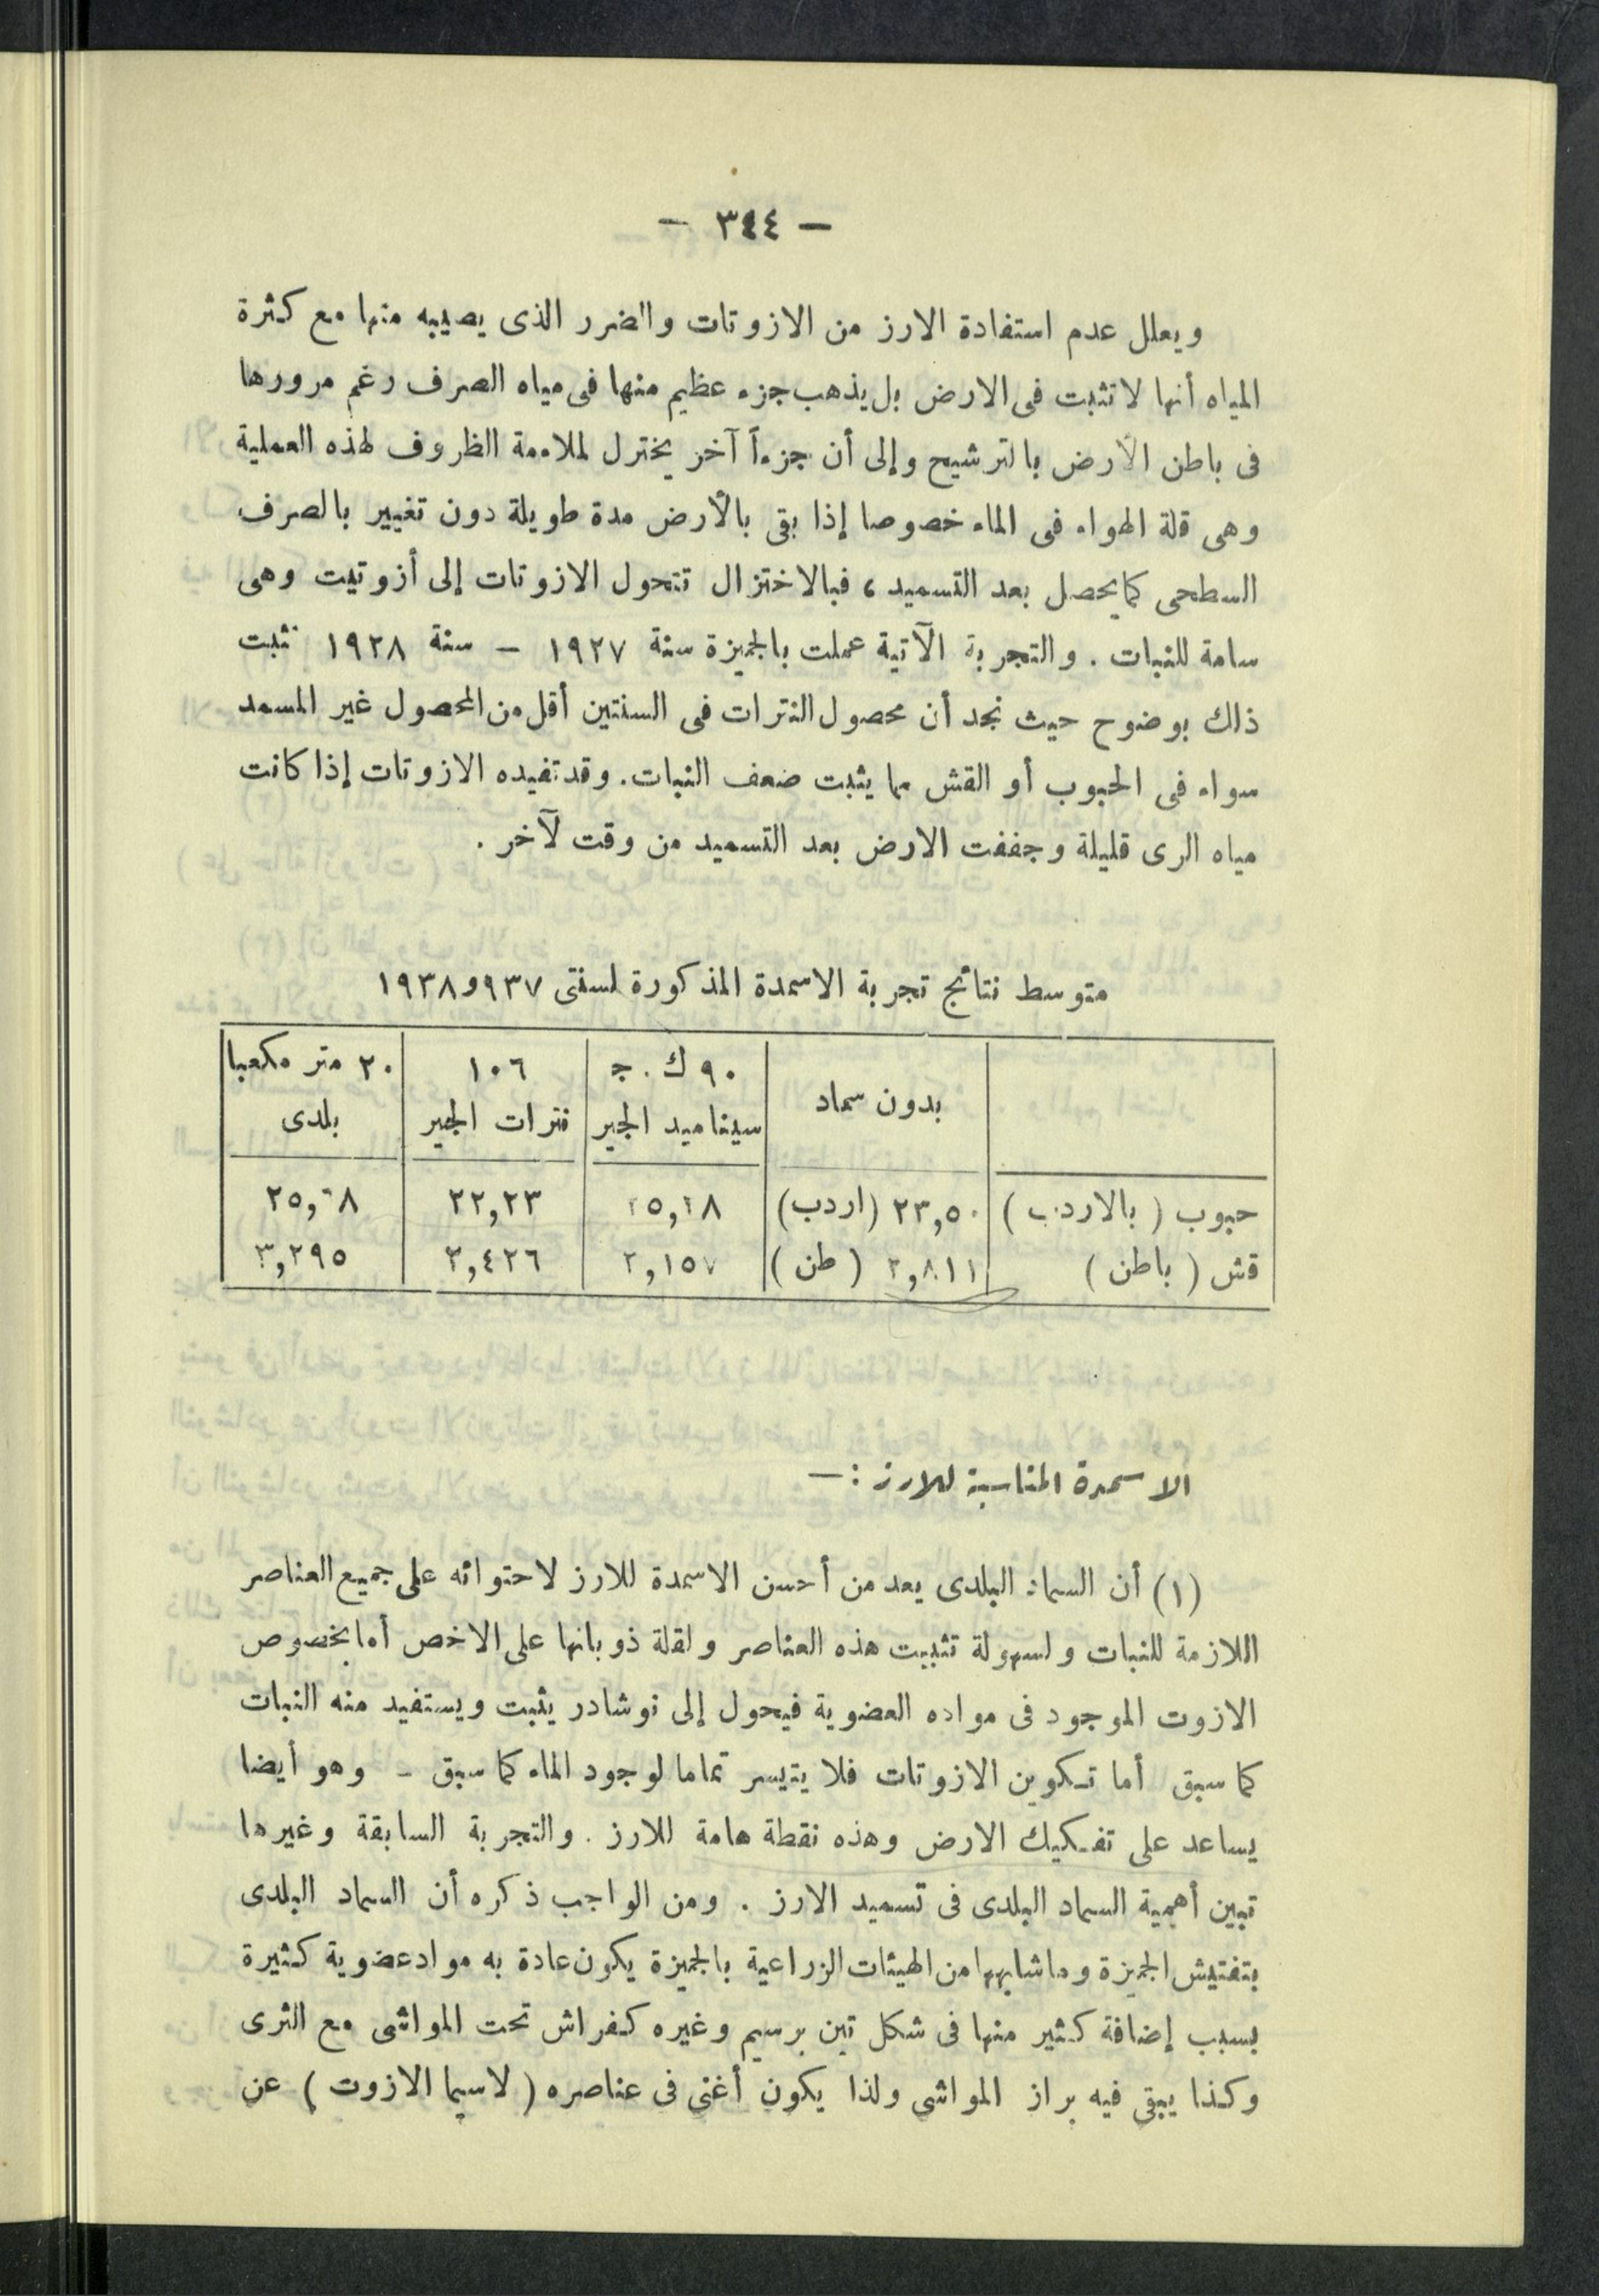 — ٣٤٤ —
ويعلل عدم استفادة الارز من الازوتات والضرر الذى يصيبه منها مع كثرة
المياه أنها لاتثبت فى الارض بل يذهب جزء عظيم منها فى مياه الصرف رغم مرورها
فى باطن الأرض بالترشيح وإلى أن جزءاً آخر يختزل لملاءمة الظروف لهذه العملية
وهى قلة الهواء فى الماء خصوصا إذا بقى بالأرض مدة طويلة دون تغيير بالصرف
السطحى كما يحصل بعد التسميد ، فبالاختزال تتحول الازوتات إلى أزوتيت وهى
سامة للنبات . والتجربة الآتية عملت بالجيزة سنة ١٩٢٧ – سنة ١٩٢٨ تثبت
ذلك بوضوح حيث نجد أن محصول النترات فى السنتين أقل من المحصول غير المسمد
سواء فى الحبوب أو القش مما يثبت ضعف النبات . وقد تفيده الازوتات إذا كانت
مياه الرى قليلة وجففت الارض بعد التسميد من وقت لآخر .
متوسط نتائج تجربة الاسمدة المذكورة لسنتى ٩٣٧و١٩٣٨
بدون سماد ٩٠ ك . ج ١٠٦ ٢٠ متر مكعبا
سيناميد الجير نترات الجير بلدى
حبوب ( بالاردب ) ٢٣,٥٠ (اردب) ٢٢,٢٣
قش ( باطن ) (طن ) ٣,٢٩٥
الاسمدة المناسبة للارز : —
(١) أن السماد البلدى يعد من أحسن الاسمدة للارز لاحتوائه على جميع العناصر
اللازمة للنبات ولسهولة تثبيت هذه العناصر ولقلة ذوبانها على الاخص أما بخصوص
الازوت الموجود فى مواده العضوية فيحول إلى نوشادر يثبت ويستفيد منه النبات
كما سبق أما تكوين الازوتات فلا يتيسر تماما لوجود الماء كما سبق – وهو أيضا
يساعد على تفكيك الارض وهذه نقطة هامة للارز . والتجربة السابقة وغيرها
تبين أهمية السماد البلدى فى تسميد الارز . ومن الواجب ذكره أن السماد البلدى
بتفتيش الجيزة وماشابهها من الهيئات الزراعية بالجيزة يكون عادة به مواد عضوية كثيرة
بسبب إضافة كثير منها فى شكل تبن برسيم وغيره كفراش تحت المواشى مع الثرى
وكذا يبقى فيه براز المواشى ولذا يكون أغنى فى عناصره ( لاسيما الازوت ) عن